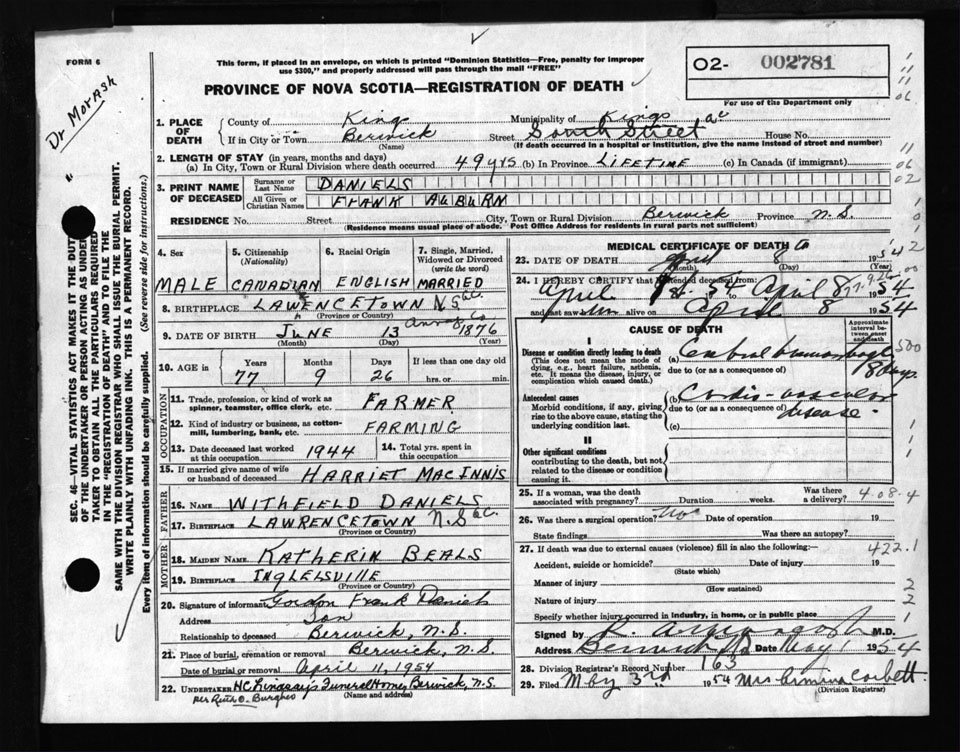 FORM 6
Dr Morash
This form, if placed in an envelope, on which is printed "Dominion Statistics—Free, penalty for improper
use $300," and properly addressed will pass through the mail "FREE"
PROVINCE OF NOVA SCOTIA—REGISTRATION OF DEATH
O2- 002781
For use of the Department only
SEC. 46 VITAL STATISTICS ACT MAKES IT THE DUTY
OF THE UNDERTAKER OR PERSON ACTING AS UNDER
TAKER TO OBTAIN ALL THE PARTICULARS REQUIRED
IN THE "REGISTRATION OF DEATH" AND TO FILE THE
SAME WITH THE DIVISION REGISTRAR WHO SHALL ISSUE THE BURIAL PERMIT.
WRITE PLAINLY WITH UNFADING INK. THIS IS A PERMANENT RECORD.
Every item of information should be carefully supplied. (See reverse side for instructions.)
1. PLACE OF DEATH County of King Municipality of Kings
If in City or Town Berwick Street South Street House No.
(Name) (If death occurred in a hospital or institution, give the name instead of street and number)
2. LENGTH OF STAY (in years, months and days)
(a) In City, Town or Rural Division where death occurred 49 yrs (b) In Province LIFETIME (c) In Canada (if immigrant)
3. PRINT NAME OF DECEASED Surname or Last Name DANIELS
All Given or Christian Names FRANK AUBURN
RESIDENCE No. Street City, Town or Rural Division Berwick Province N.S.
(Residence means usual place of abode. Post Office Address for residents in rural parts not sufficient)
4. Sex MALE
5. Citizenship (Nationality) CANADIAN
6. Racial Origin ENGLISH
7. Single, Married, Widowed or Divorced (write the word) MARRIED
8. BIRTHPLACE LAWENCETOWN N.S.
(Province or Country)
9. DATE OF BIRTH JUNE 13 1876
(Month) (Day) (Year)
10. AGE IN Years 77 Months 9 Days 26 If less than one day old hrs. or min.
OCCUPATION
11. Trade, profession, or kind of work as spinner, teamster, office clerk, etc. FARMER
12. Kind of industry or business, as cotton-mill, lumbering, bank, etc. FARMING
13. Date deceased last worked at this occupation 1944
14. Total yrs. spent in this occupation
15. If married give name of wife or husband of deceased HARRIET MACINNIS
FATHER
16. NAME WITHFIELD DANIELS
17. BIRTHPLACE LAWRENCETOWN N.S.
(Province or Country)
MOTHER
18. MAIDEN NAME KATHERIN BEALS
19. BIRTHPLACE INGLELSVILLE
(Province or Country)
20. Signature of informant Gordon Frank Daniels
Address Son
Relationship to deceased Berwick, N.S.
21. Place of burial, cremation or removal Berwick, N.S.
Date of burial or removal April 11, 1954
22. UNDERTAKER H.C. Lindsay's Funeral Home, Berwick, N.S.
(Name and address)
per Ruth O.
MEDICAL CERTIFICATE OF DEATH
23. DATE OF DEATH April 8 1954
(Month) (Day) (Year)
24. I HEREBY CERTIFY that I attended deceased from
April 1st 54 to April 8 1954
and last saw him alive on April 8 1954
CAUSE OF DEATH
Approximate interval between onset and death
I
Disease or condition directly leading to death
(This does not mean the mode of dying, e.g., heart failure, asthenia, etc. It means the disease, injury, or complication which caused death.)
(a) Cerebral hemorrhage 8 days
due to (or as a consequence of)
Antecedent causes
Morbid conditions, if any, giving rise to the above cause, stating the underlying condition last.
(b) Cardio-vascular disease.
due to (or as a consequence of)
(c)
II
Other significant conditions
contributing to the death, but not related to the disease or condition causing it.
25. If a woman, was the death associated with pregnancy? Duration weeks. Was there a delivery?
26. Was there a surgical operation? No Date of operation 19
State findings Was there an autopsy?
27. If death was due to external causes (violence) fill in also the following:—
Accident, suicide or homicide? Date of injury 19
(State which)
Manner of injury
(How sustained)
Nature of injury
Specify whether injury occurred in industry, in home, or in public place
422.1
Signed by M.D.
Address Berwick Date May 1 1954
28. Division Registrar's Record Number 163
29. Filed May 3rd 1954 Mrs Armina Corbett.
(Division Registrar)